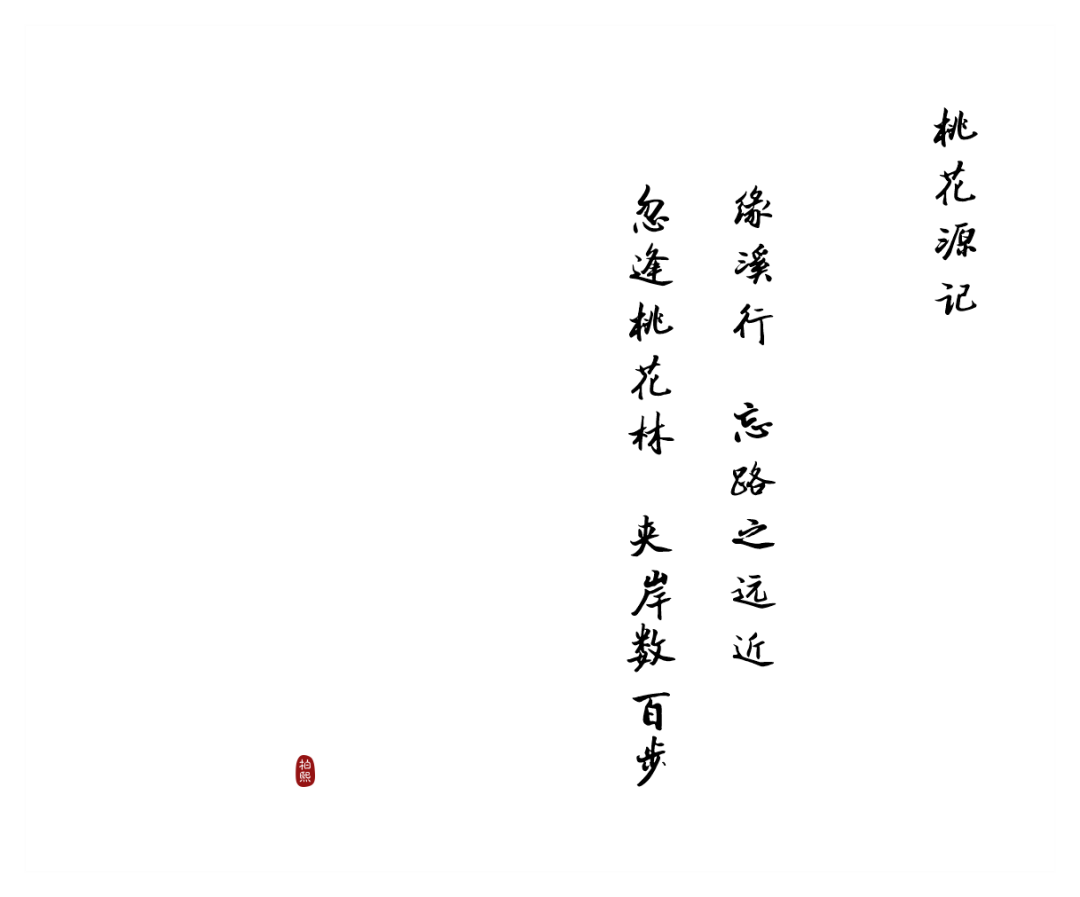 桃花源记
缘溪行 忘路之远近
忽逢桃花林 夹岸数百步
柏熙